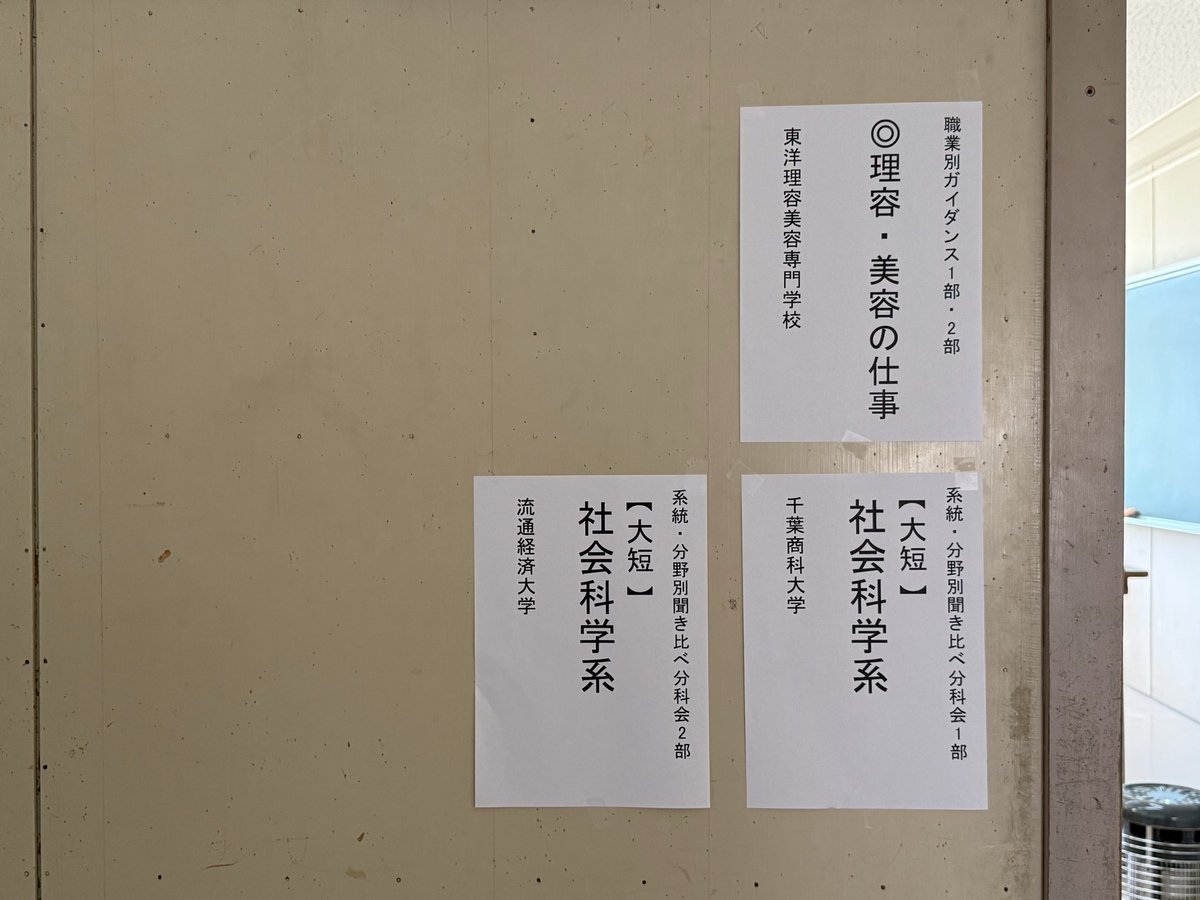 職業別ガイダンス1部・2部
◎理容・美容の仕事
東洋理容美容専門学校
系統・分野別聞き比べ分科会1部
【大短】
社会科学系
千葉商科大学
系統・分野別聞き比べ分科会2部
【大短】
社会科学系
流通経済大学